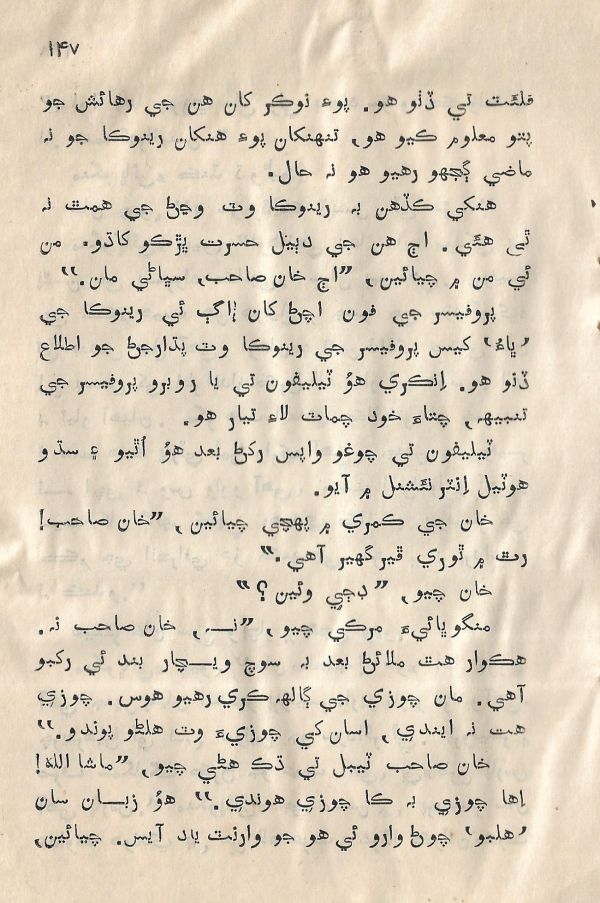 ۱۴۷
فلئٽ تي ڏٺو هو. پوءِ نوڪر کان هن جي رهائش جو
پتو معلوم ڪيو هو, تنهنکان پوءِ هنکان رينوڪا جو نہ
ماضي ڳجهو رهيو هو نہ حال.
هنکي ڪڏهن بہ رينوڪا وٽ وڃڻ جي همٿ نہ
ٿي هئي. اڄ هن جي دٻيل حسرت ڀڙڪو کاڌو. من
ئي من ۾ چيائين, ”اڄ خان صاحب, سڀاڻي مان.“
پروفيسر جي فون اچڻ کان اڳ ئي رينوڪا جي
’ڀاءُ‘ کيس پروفيسر جي رينوڪا وٽ پڌارجڻ جو اطلاع
ڏنو هو. اِنڪري هوُ ٽيليفون تي يا روبرو پروفيسر جي
تنبيهہ, چتاءَ خود چماٽ لاءِ تيار هو.
ٽيليفون تي چوغو واپس رکڻ بعد هوُ اُٿيو ۽ سڌو
هوٽيل اِنٽرنئشنل ۾ آيو.
خان جي ڪمري ۾ پهچي چيائين, ”خان صاحب!
رٿ ۾ ٿوري ڦيرگهير آهي.“
خان چيو, ”ڊڄي وئين؟“
منگوڀائيءَ مرڪي چيو, ”نــہ, خان صاحب نہ.
هڪوار هٿ ملائڻ بعد بہ سوچ ويـچار بند ئي رکبو
آهي. مان چوزي جي ڳالهہ ڪري رهيو هوس. چوزي
هت نہ ايندي, اسان کي چوزيءَ وٽ هلڻو پوندو.“
خان صاحب ٽيبل تي ڌڪ هڻي چيو, ”ماشا الله!
اِها چوزي بہ ڪا چوزي هوندي.“ هوُ زبـان سان
’هلبو‘ چوڻ وارو ئي هو جو وارنٽ ياد آيس. چيائين,